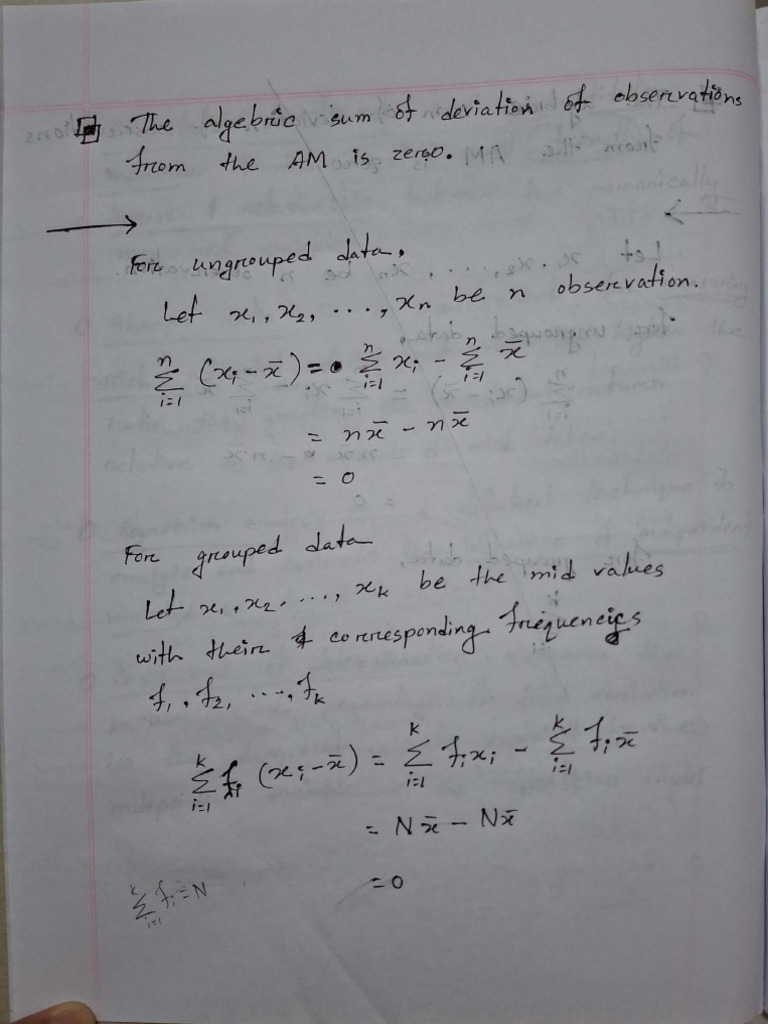 The algebric sum of deviation of observations
from the AM is zero.
For ungrouped data,
Let x₁, x₂, ..., xₙ be n observation.
∑ᵢ₌₁ⁿ (xᵢ - x̄) = ∑ᵢ₌₁ⁿ xᵢ - ∑ᵢ₌₁ⁿ x̄
= nx̄ - nx̄
= 0
For grouped data
Let x₁, x₂, ..., xₖ be the mid values
with their corresponding frequencies
f₁, f₂, ..., fₖ
∑ᵢ₌₁ᵏ fᵢ (xᵢ - x̄) = ∑ᵢ₌₁ᵏ fᵢxᵢ - ∑ᵢ₌₁ᵏ fᵢx̄
= Nx̄ - Nx̄
= 0
∑ᵢ₌₁ᵏ fᵢ = N